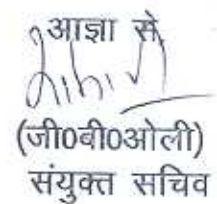 आज्ञा से,
(जी0बी0ओली)
संयुक्त सचिव